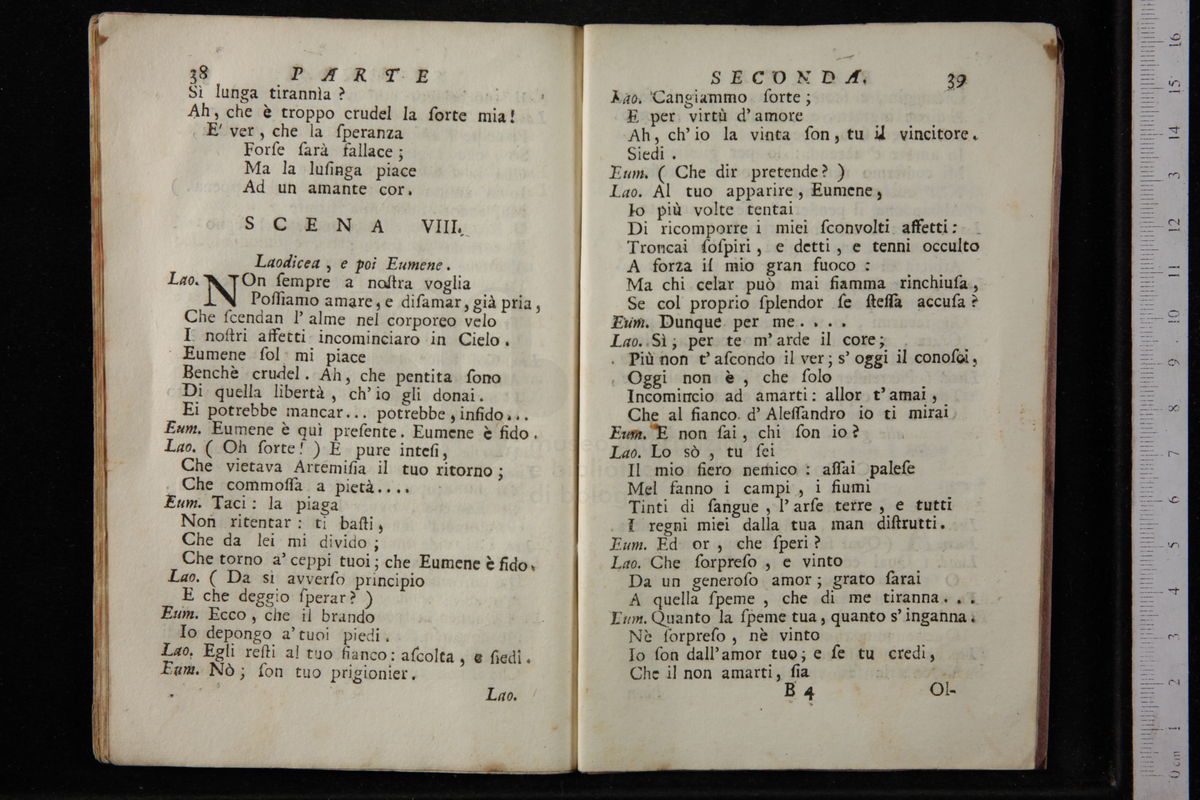 38 PARTE
Sì lunga tirannìa ?
Ah, che è troppo crudel la ſorte mia!
E' ver, che la ſperanza
Forſe ſarà fallace ;
Ma la luſinga piace
Ad un amante cor.
SCENA VIII.
Laodicea, e poi Eumene.
Lao. NOn ſempre a noſtra voglia
Poſſiamo amare, e diſamar, già pria,
Che ſcendan l' alme nel corporeo velo
I noſtri affetti incominciaro in Cielo.
Eumene ſol mi piace
Benchè crudel. Ah, che pentita ſono
Di quella libertà, ch' io gli donai.
Ei potrebbe mancar... potrebbe, infido...
Eum. Eumene è quì preſente. Eumene è fido.
Lao. ( Oh ſorte! ) E pure inteſi,
Che vietava Artemiſia il tuo ritorno ;
Che commoſſa a pietà....
Eum. Taci : la piaga
Non ritentar : ti baſti,
Che da lei mi divido ;
Che torno a' ceppi tuoi ; che Eumene è fido.
Lao. ( Da sì avverſo principio
E che deggio ſperar? )
Eum. Ecco, che il brando
Io depongo a' tuoi piedi.
Lao. Egli reſti al tuo fianco : aſcolta, e ſiedi.
Eum. Nò ; ſon tuo prigionier.
Lao.
SECONDA. 39
Lao. Cangiammo ſorte ;
E per virtù d' amore
Ah, ch' io la vinta ſon, tu il vincitore.
Siedi .
Eum. ( Che dir pretende? )
Lao. Al tuo apparire, Eumene,
Io più volte tentai
Di ricomporre i miei ſconvolti affetti :
Troncai ſoſpiri, e detti, e tenni occulto
A forza il mio gran fuoco :
Ma chi celar può mai fiamma rinchiuſa,
Se col proprio ſplendor ſe ſteſſa accuſa?
Eum. Dunque per me....
Lao. Sì ; per te m' arde il core ;
Più non t' aſcondo il ver ; s' oggi il conoſci,
Oggi non è, che ſolo
Incomincio ad amarti : allor t' amai,
Che al fianco d' Aleſſandro io ti mirai
Eum. E non ſai, chi ſon io?
Lao. Lo sò, tu ſei
Il mio fiero nemico : aſſai paleſe
Mel fanno i campi, i fiumi
Tinti di ſangue, l' arſe terre, e tutti
I regni miei dalla tua man diſtrutti.
Eum. Ed or, che ſperi?
Lao. Che ſorpreſo, e vinto
Da un generoſo amor ; grato ſarai
A quella ſpeme, che di me tiranna...
Eum. Quanto la ſpeme tua, quanto s' inganna.
Nè ſorpreſo, nè vinto
Io ſon dall' amor tuo ; e ſe tu credi,
Che il non amarti, ſia
B 4 Ol-